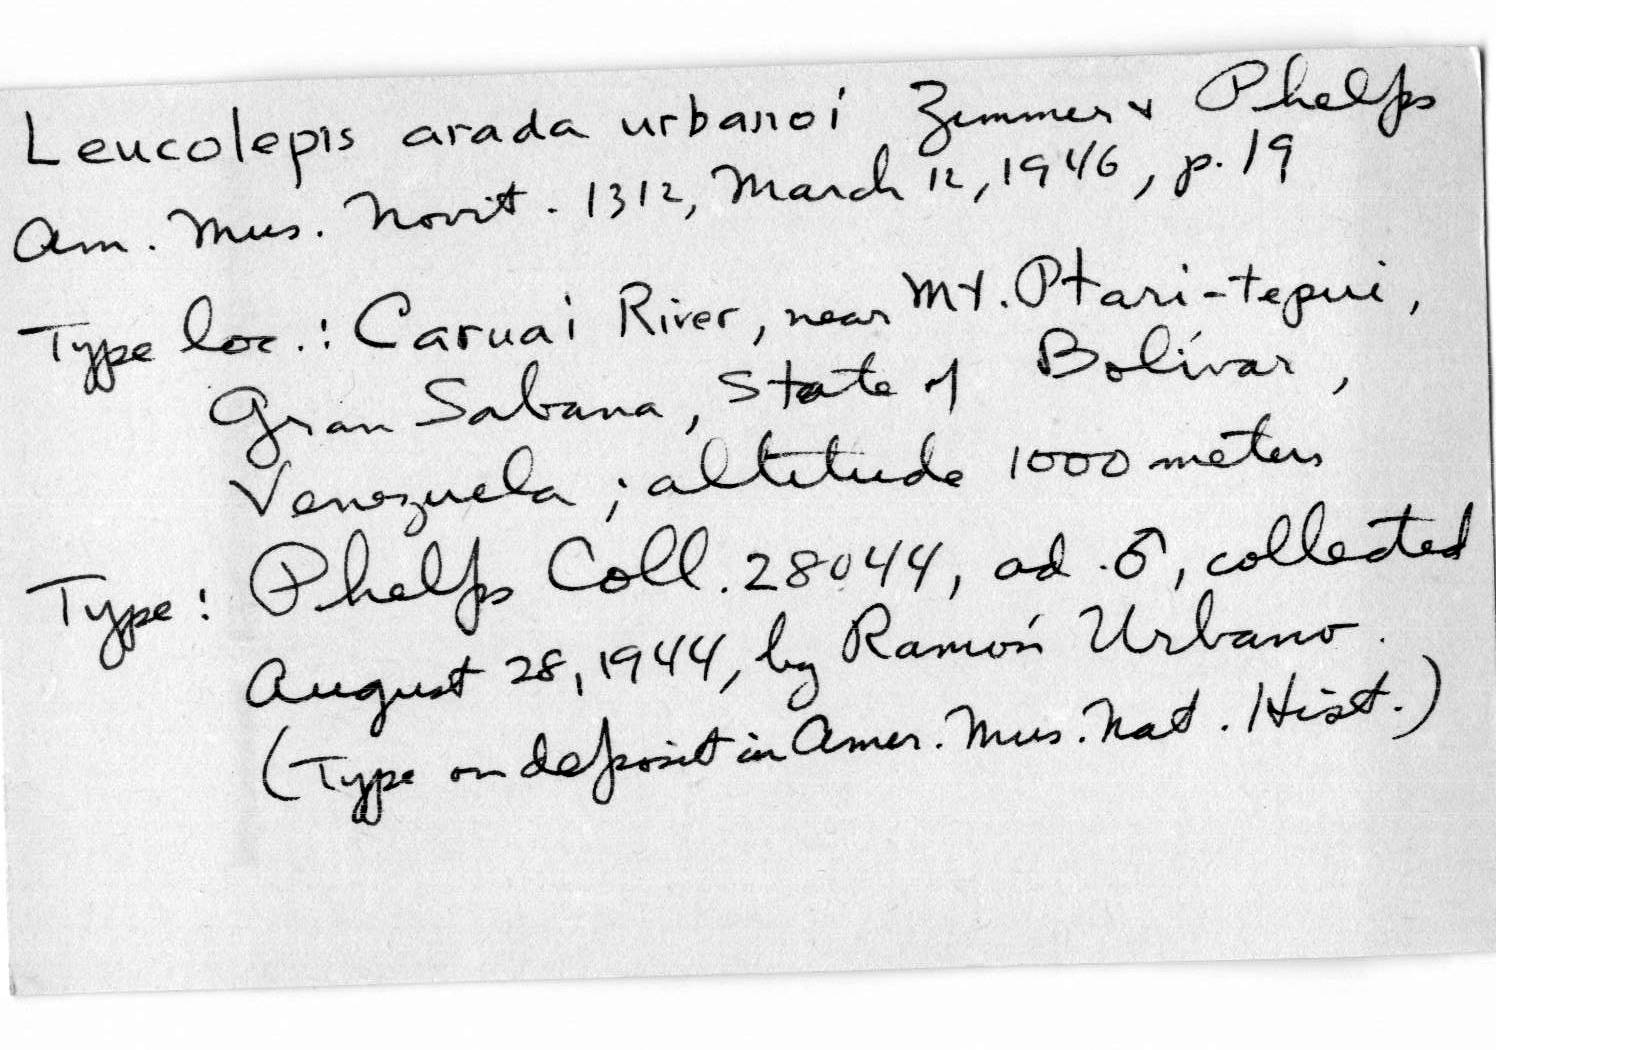 Leucolepis arada urbanoi Zimmer & Phelps
Am. Mus. Novit. 1312, March 12, 1946, p. 19
Type loc.: Caruai River, near Mt. Ptari-tepui,
Gran Sabana, State of Bolívar,
Venezuela; altitude 1000 meters
Type: Phelps Coll. 28044, ad. ♂, collected
August 28, 1944, by Ramón Urbano.
(Type on deposit in Amer. Mus. Nat. Hist.)